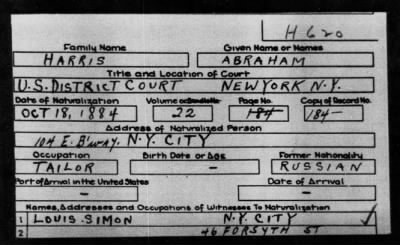 H 620
Family Name Given Name or Names
HARRIS ABRAHAM
Title and Location of Court
U.S. DISTRICT COURT NEW YORK N.Y.
Date of Naturalization Volume or Bundle No. Page No. Copy of Record No.
OCT 18, 1884 22 184 184
Address of Naturalized Person
104 E. B'WAY. N.Y. CITY
Occupation Birth Date or Age Former Nationality
TAILOR – RUSSIAN
Port of Arrival in the United States Date of Arrival
– –
Names, Addresses and Occupations of Witnesses To Naturalization
1 LOUIS SIMON N.Y. CITY ✓
2 46 FORSYTH ST